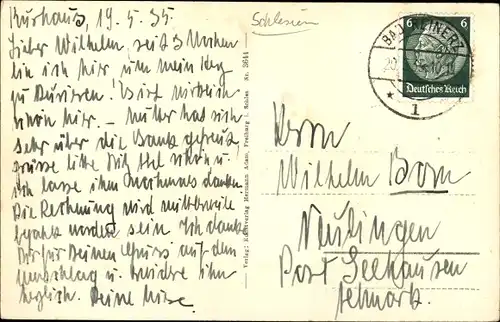 Kurhaus, 19.5.35.
Lieber Wilhelm, seit 3 Wochen
bin ich hier, um mein Herz
zu kurieren. Es ist wirklich
schön hier. — Mutter hat sich
sehr über die Bank gefreut
grüsse bitte
ich lasse ihm nochmals danken.
Die Rechnung wird mittlerweile
bezahlt worden sein. Ich danke
Dir für Deinen Gruss auf dem
Umschlag u. erwidere ihn
herzlich. Deine
Verlag: Buchverlag Hermann Adam, Freiburg i. Schles. Nr. 3644
Schlesien
BAD REINERZ
1
6 6
Deutsches Reich
Herrn
Wilhelm Born
Neulingen
Post Seehausen
Altmark.